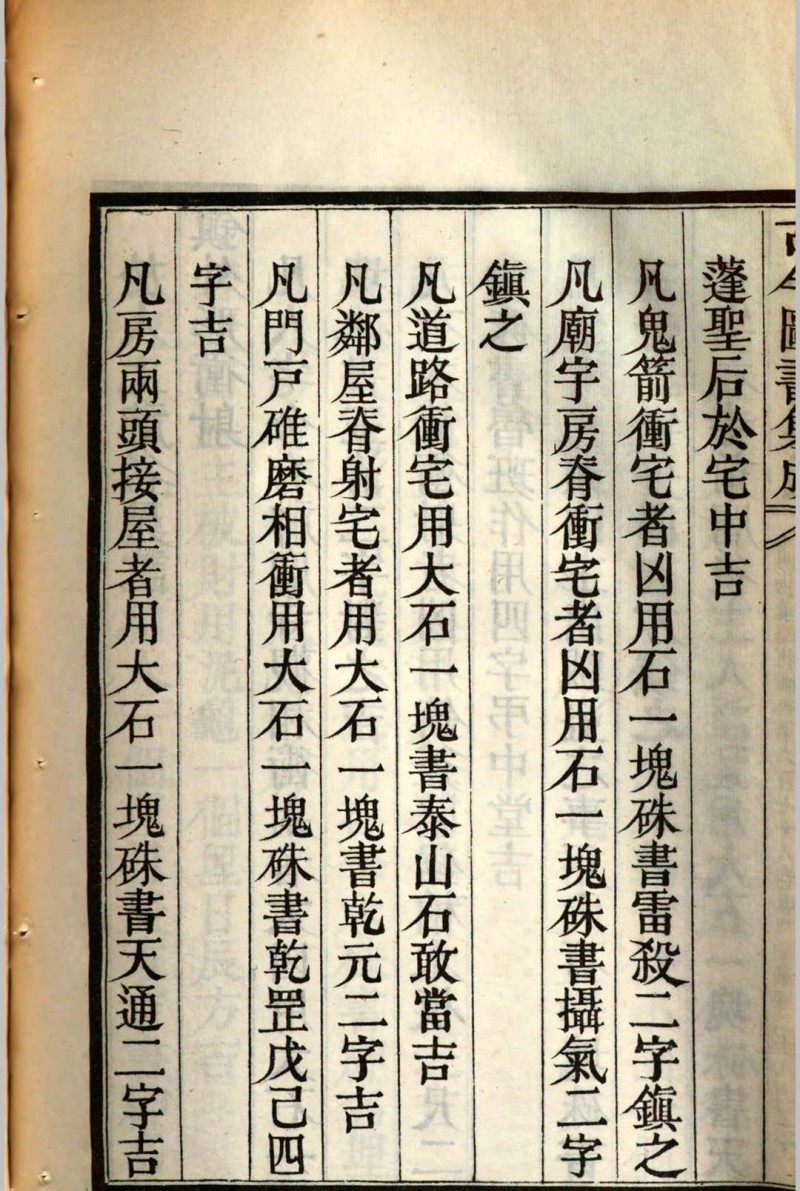 古今圖書集成
蓬聖后於宅中吉
凡鬼箭衝宅者凶用石一塊硃書雷殺二字鎭之
凡廟宇房脊衝宅者凶用石一塊硃書攝氣二字
鎭之
凡道路衝宅用大石一塊書泰山石敢當吉
凡鄰屋脊射宅者用大石一塊書乾元二字吉
凡門戸碓磨相衝用大石一塊硃書乾罡戊己四
字吉
凡房兩頭接屋者用大石一塊硃書天通二字吉